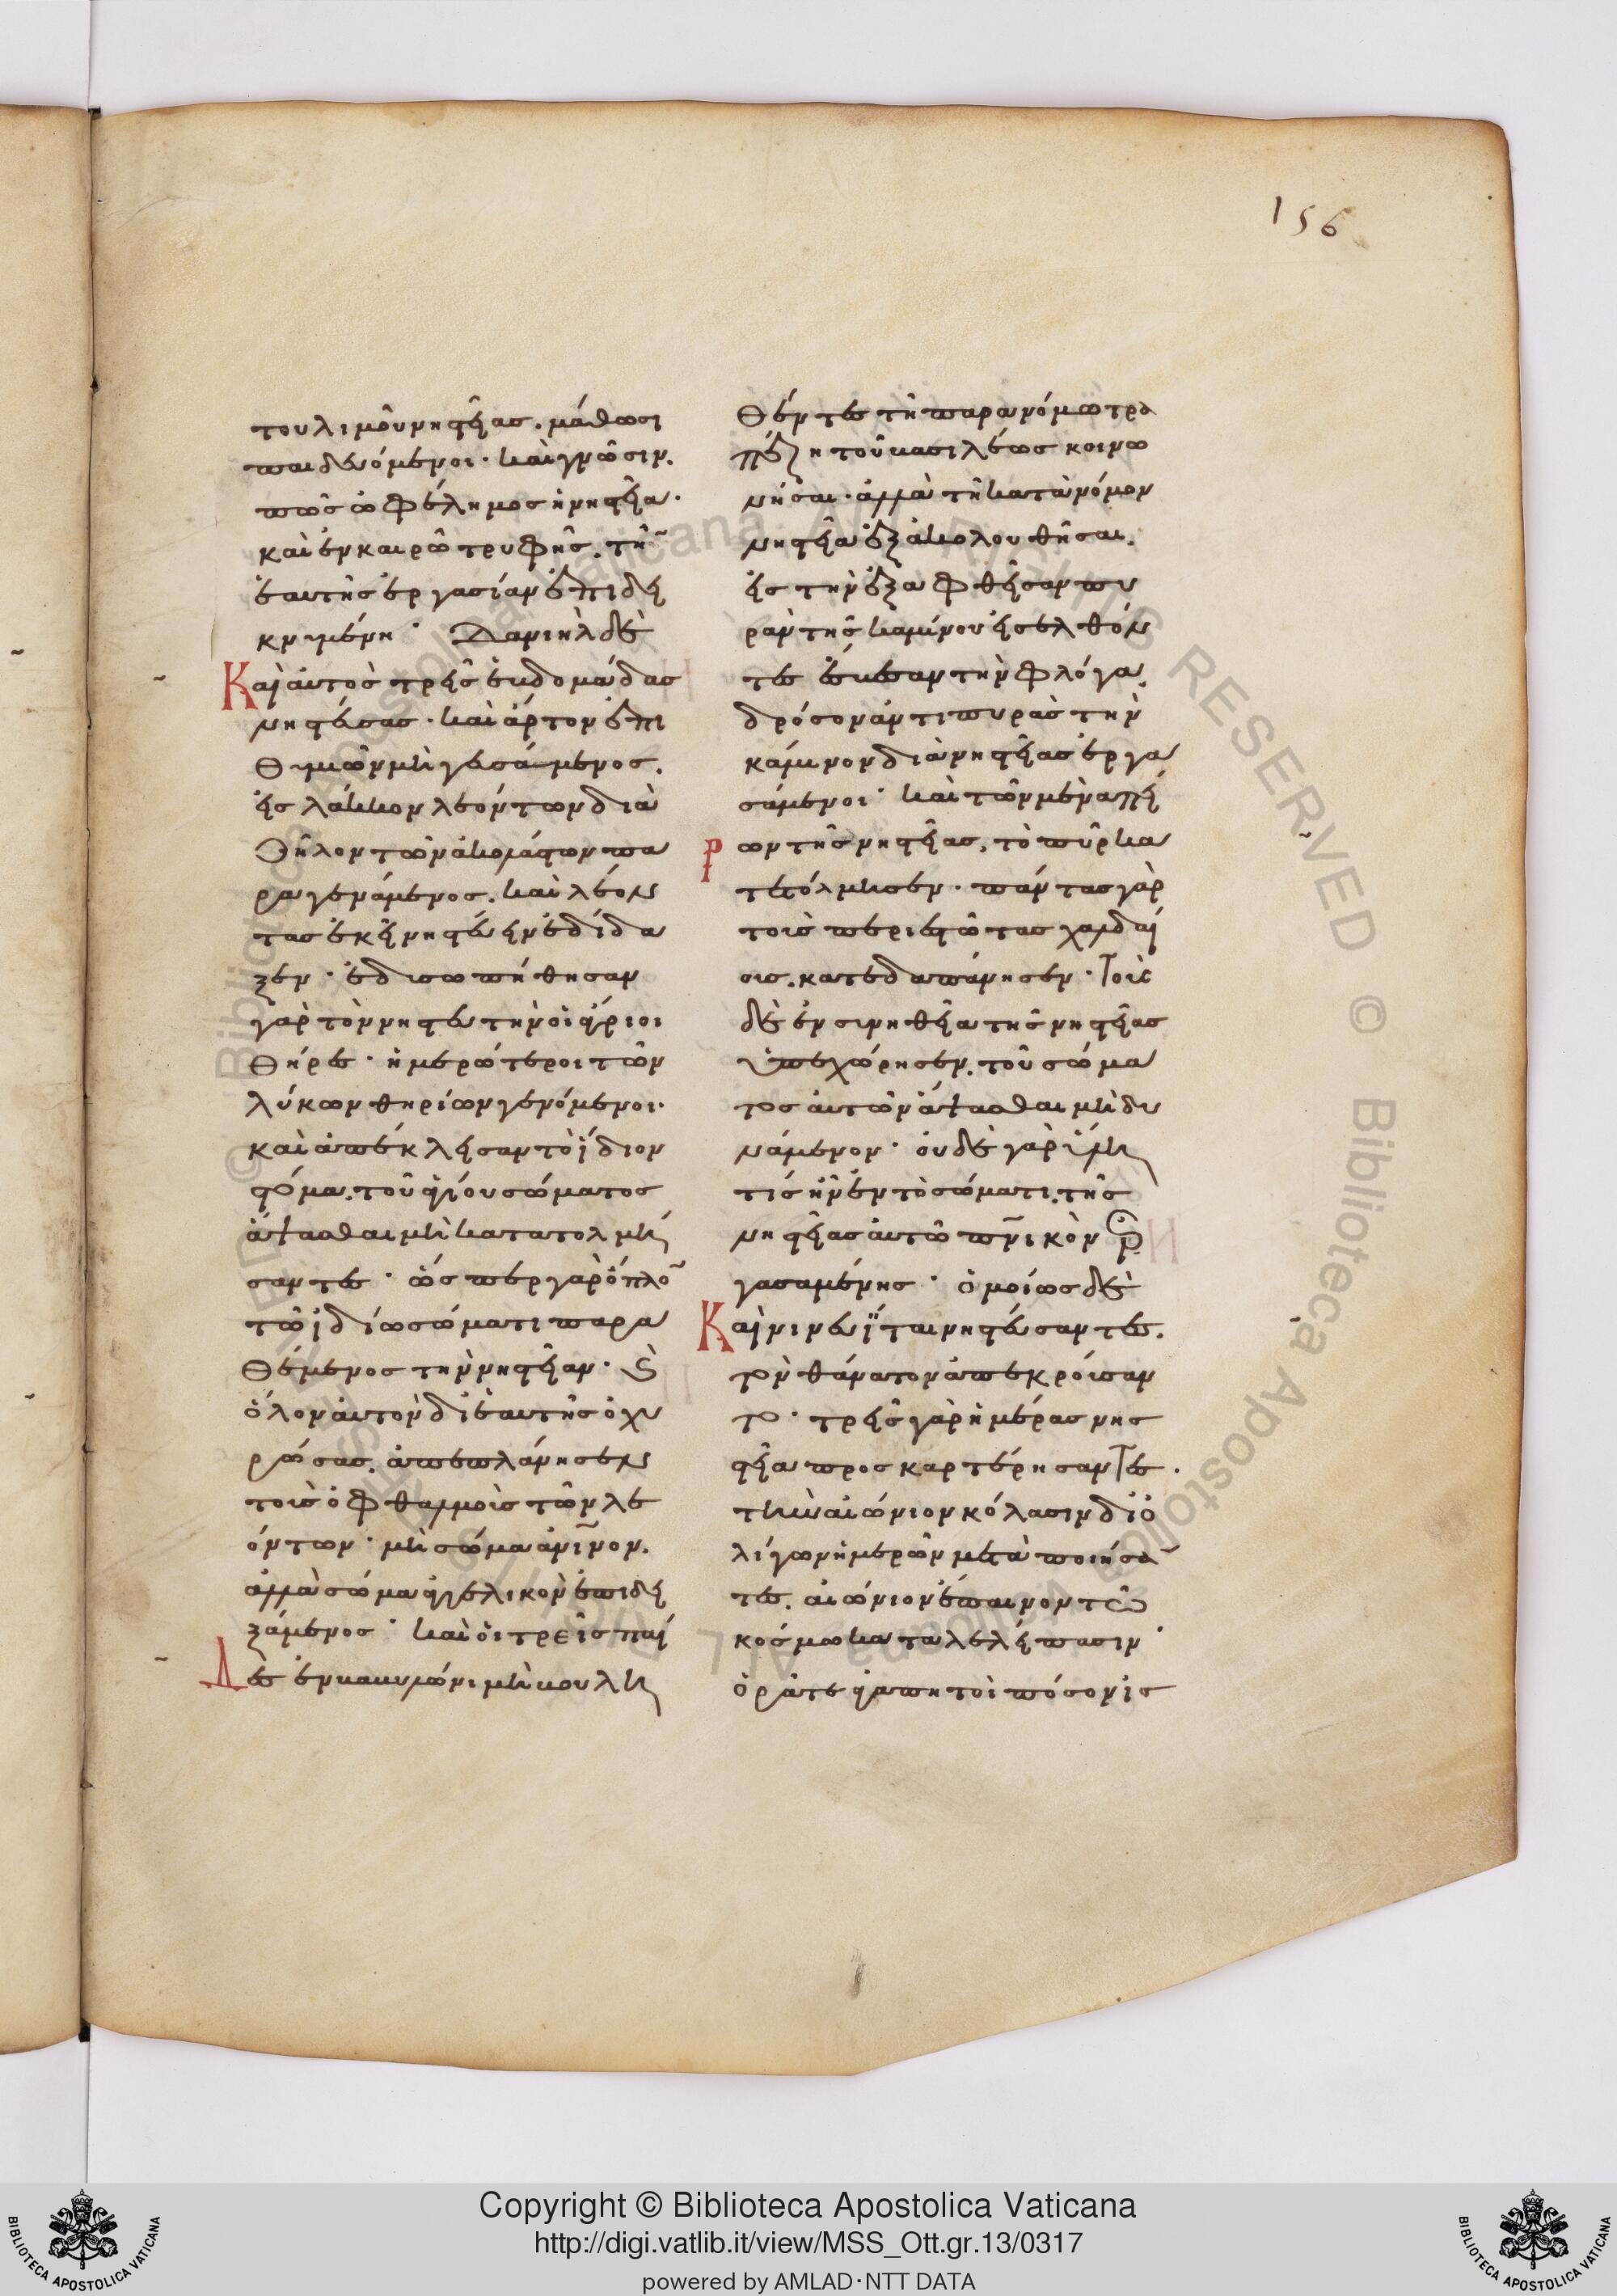 156
του λιμοῦ νηστείας. μάθωσι
παιδευόμενοι· καὶ γνῶσιν.
πῶς ὠφέλημος ἡ νηστεία·
καὶ ἐν καιρῶ τρυφῆς. τὴν
ἑαυτῆς ἐργασίαν ἐπιδει
κνυμένη· Δανιὴλ δὲ
Καὶ αὐτὸς τρεῖς ἑβδομάδας
νηστεύσας· καὶ ἄρτον ἐπι
θυμιῶν μὴ γευσάμενος.
εἰς λάκκον λεόντων διὰ
ζῆλον τῶν ἀκολάστων πα
ραγενάμενος. καὶ λέον
τας ἐκεῖ νηστεύειν ἐδίδα
ξεν· ἐδυσωπήθησαν
γὰρ τὸν νηστευτὴν οἱ ἄγριοι
θῆρες· ἡμερώτεροι τῶν
λύκων θηρίων γενόμενοι·
καὶ ἀπέκλεισαν τὸ ἴδιον
στόμα. τοῦ ἁγίου σώματος
ἅψασθαι μὴ κατατολμή
σαντες· ὥσπερ γὰρ ὅπλον
τῶ ἰδίω σώματι παρα
θέμενος τὴν νηστείαν· καὶ
ὅλον αὐτὸν δι' ἑαυτῆς ὀχυ
ρώσας. ἀπεπλάνησεν
τοῖς ὀφθαλμοῖς τῶν λε
όντων· μὴ σῶμα ἀνινον.
ἀλλὰ σῶμα ἀγγελικὸν ἐπιδει
ξάμενος· καὶ οἱ τρεῖς παῖ
Δες ἐν βαβυλῶνι μὴ βουλη
θέντες τῆ παρανόμω τρα
πέζη τοῦ βασιλέως κοινω
νῆσαι· ἀλλὰ τῆ κατὰ νόμον
νηστεία ἐξακολουθῆσαι.
εἰς τὴν ἐξαφθεῖσαν πυ
ρὰν τῆς καμίνου εἰσελθόν
τες ἔσβεσαν τὴν φλόγα.
δρόσον ἀντὶ πυρὰς τὴν
κάμινον διὰ νηστείας ἐργα
σάμενοι· καὶ τῶν μὲν ἀπεί
Ρων τῆς νηστείας. τὸ πῦρ κα
τετόλμησεν· πάντας γὰρ
τοὺς περιεστῶτας χαλδαί
οις. κατεδαπάνησεν· Τοῖς
δὲ ἐν συνηθεία τῆς νηστείας
ὑπεχώρησεν. τοῦ σώμα
τος αὐτῶν ἅψασθαι μὴ δυ
νάμενον· οὐδὲ γὰρ ὕλη
τίς ἦν ἐν τὸ σώματι. τῆς
νηστείας αὐτῶ πνικὸν ἐρ
γασαμένης· ὁμοίως δὲ
Καὶ νινευΐται νηστεύσαντες.
τὸν θάνατον ἀπεκρούσαν
το· τρεῖς γὰρ ἡμέρας νησ
τεία προσκαρτέρησαντες.
τὴν αἰώνιον κόλασιν δι' ὀ
λίγων ἡμερῶν μεταποιήσαν
τες. αἰώνιον ἔπαινον τῶ
κόσμω καταλελείπασιν·
ὁρᾶτε ἀγαπητοὶ πόσον ἰσ
Copyright © Biblioteca Apostolica Vaticana
http://digi.vatlib.it/view/MSS_Ott.gr.13/0317
powered by AMLAD·NTT DATA